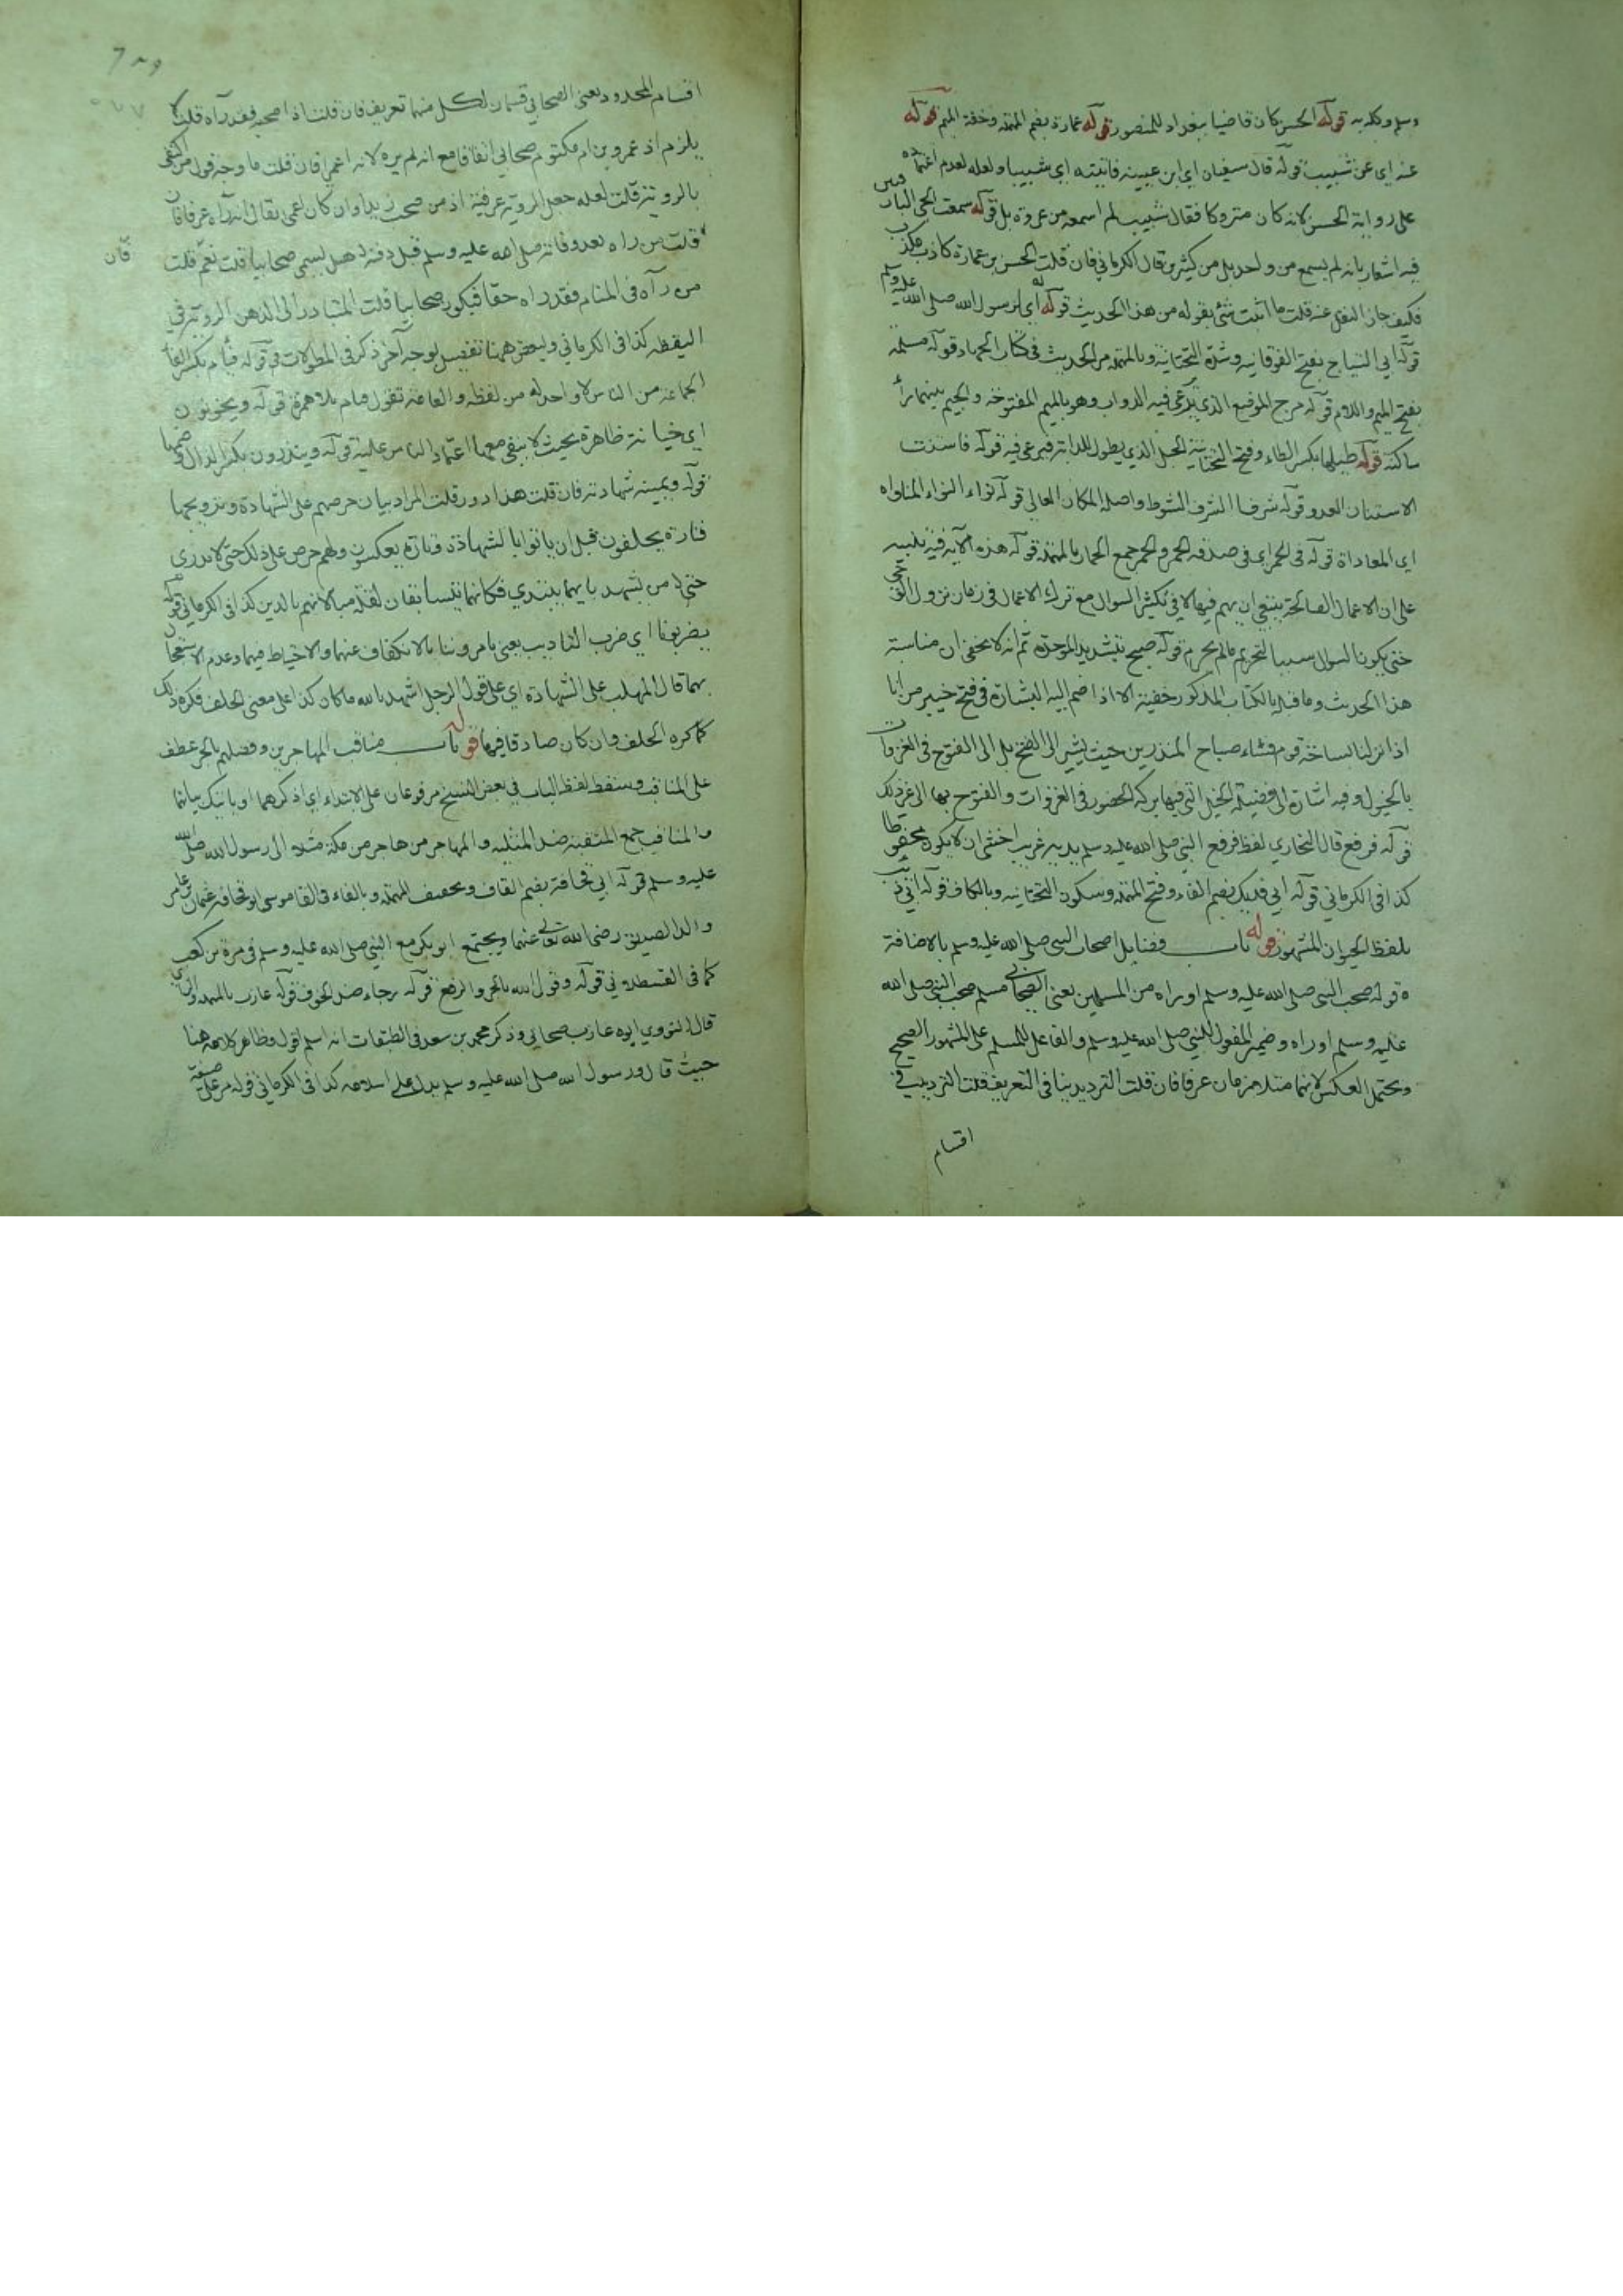 وسلم وكله به قوله الحسن كان قاضيا ببغداد للمنصور قوله عمارة بضم المهملة وخفة الميم قوله
عنه اي عن شبيب قوله قال سفيان اي ابن عيينه فاتيته اي شبيبا ولعله لعدم اعتماده
على رواية الحسن لانه كان متروكا فقال شبيب لم اسمعه من عروة بل قوله سمعت الحي البارقيين
فيه اشعار بانه لم يسمع من واحد بل من كثيرين قال الكرماني فان قلت الحسن بن عمارة كاذب مكذب
فكيف جاز النقل عنه قلت ما اثبت شئ بقوله من هذا الحديث قوله اي لرسول الله صلى الله عليه وسلم
قوله ابي التياح بفتح الفوقانية وشدة التحتانية وبالمهملة مر الحديث في كتاب الجهاد قوله مسلمة
بفتح الميم واللام قوله مرج الموضع الذي يرعى فيه الدواب وهو بالميم المفتوحة والجيم بينهما راء
ساكنة قوله طيلها بكسر الطاء وفتح التحتانية الحبل الذي يطول للدابة فيرعى فيه قوله فاستنت
الاستنان العدو قوله شرفا الشرف الشوط واصله المكان العالي قوله نواء النواء المناواه
اي المعاداة قوله في الحمر اي في صدقة الحمر والحمر جمع الحمار بالمهملة قوله هذه الآية فيه تلبيه
على ان الاعمال الصالحة ينبغي ان يهم فيها لا في تكثير السوال مع ترك الاعمال في زمان نزول الوحي
حتى يكون السوال سببا لتحريم مالم يحرم قوله صبح بتشديد الموحدة ثم انه لا يخفى ان مناسبة
هذا الحديث وما قبله بالكتاب المذكور خفية الا اذا ضم اليه البشارة في فتح خيبر من انا
اذا نزلنا بساحة قوم فساء صباح المنذرين حيث يشير الى الفتح بل الى الفتوح في الغزوات
بالخيول وفيه اشارة الى فضيلة الخيل التي فيها بركة الحضور في الغزوات والفتوح بها الى غير ذلك
قوله فرفع قال البخاري لفظ فرفع النبي صلى الله عليه وسلم يديه غريب اخشى ان لا يكون محفوظا
كذا في الكرماني قوله ابي فديك بضم الفاء وفتح المهملة وسكون التحتانية وبالكاف قوله
بلفظ الحيوان المشهور قوله باب فضايل اصحاب النبي صلى الله عليه وسلم بالاضافة
قوله صحب النبي صلى الله عليه وسلم او راه من المسلمين يعني الصحابي مسلم صحب النبي صلى الله
عليه وسلم او راه وضمير المفعول للنبي صلى الله عليه وسلم والفاعل للمسلم على المشهور الصحيح
ويحتمل العكس لانهما متلازمان عرفا فان قلت الترديد ينافى التعريف قلت الترديد في
اقسام
اقسام المحدود يعني الصحابي قسمان لكل منهما تعريف فان قلت اذا صحبه فقد رآه قلت لا
يلزم اذ عمرو بن ام مكتوم صحابي اتفاقا مع انه لم يره لانه اعمى فان قلت ما وجه قول من اكتفى
بالرؤية قلت لعله جعل الرؤية عرفية اذ من صحب زيدا وان كان اعمى يقال انه رآه عرفا فان
قلت من راه بعد وفاته صلى الله عليه وسلم قبل دفنه هل يسمى صحابيا قلت نعم قلت
فان
من رآه في المنام فقد راه حقا فيكون صحابيا قلت المتبادر الى الذهن الرؤية في
اليقظة كذا في الكرماني ولبعض ههنا تفصيل بوجه آخر ذكر في المطولات قوله فئام بكسر الفاء
الجماعة من الناس لا واحد له من لفظه والعامة تقول فيام بلا همزة قوله ويخونون
اي خيانة ظاهرة بحيث لا يبقى معها اعتماد الناس عليه قوله وينذرون بكسر الذال وضمها
قوله ويمينه شهادته فان قلت هذا دور قلت المراد بيان حرصهم على الشهادة وترويجها
فتارة يحلفون قبل ان ياتوا بالشهادة وتارة يعكسون ولهم حرص على ذلك حتى لا يدرى
بايهما يبتدي فكانهما يتسابقان لقلة مبالاتهم بالدين كذا في الكرماني قوله
يضربوننا اي ضرب التاديب يعني يامروننا بالانكفاف عنهما والاحتياط فيهما وعدم الاستعجال
بهما قال المهلب على الشهادة اي على قول الرجل اشهد بالله ما كان كذا على معنى الحلف فكره ذلك
كما كره الحلف وان كان صادقا فيها قوله باب مناقب المهاجرين وفضلهم بالجر عطف
على المناقب وسقط لفظ الباب في بعض النسخ مرفوعان على الابتداء اي اذكرهما
والمناقب جمع المنقبة ضد المثلبه والمهاجر من هاجر من مكة مثلا الى رسول الله صلى الله
عليه وسلم قوله ابي قحافة بضم القاف وتخفيف المهملة وبالفاء في القاموس ابو قحافة عثمان بن عامر
والد الصديق رضي الله تعالى عنهما ويجتمع ابو بكر مع النبي صلى الله عليه وسلم في مرة بن كعب
كما في القسطلاني قوله وقول الله بالجر والرفع قوله رجاء ضد الخوف قوله عازب بالمهملة والزاي
قال النووي ابوه عازب صحابي وذكر محمد بن سعد في الطبقات انه اسلم اقول وظاهر كلامه هنا
حيث قال ورسول الله صلى الله عليه وسلم يدل على اسلامه كذا في الكرماني قوله